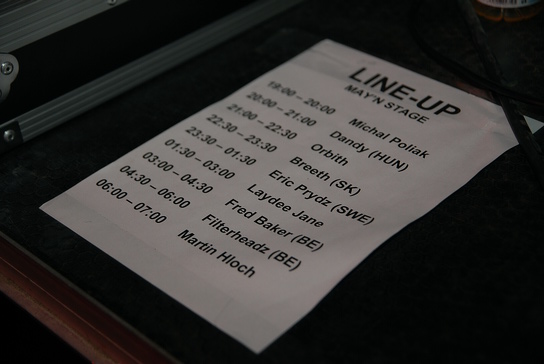 LINE-UP
MAY'N STAGE
19:00 – 20:00 Michal Poliak
20:00 – 21:00 Dandy (HUN)
21:00 – 22:30 Orbith
22:30 – 23:30 Breeth (SK)
23:30 – 01:30 Eric Prydz (SWE)
01:30 – 03:00 Laydee Jane
03:00 – 04:30 Fred Baker (BE)
04:30 – 06:00 Filterheadz (BE)
06:00 – 07:00 Martin Hloch